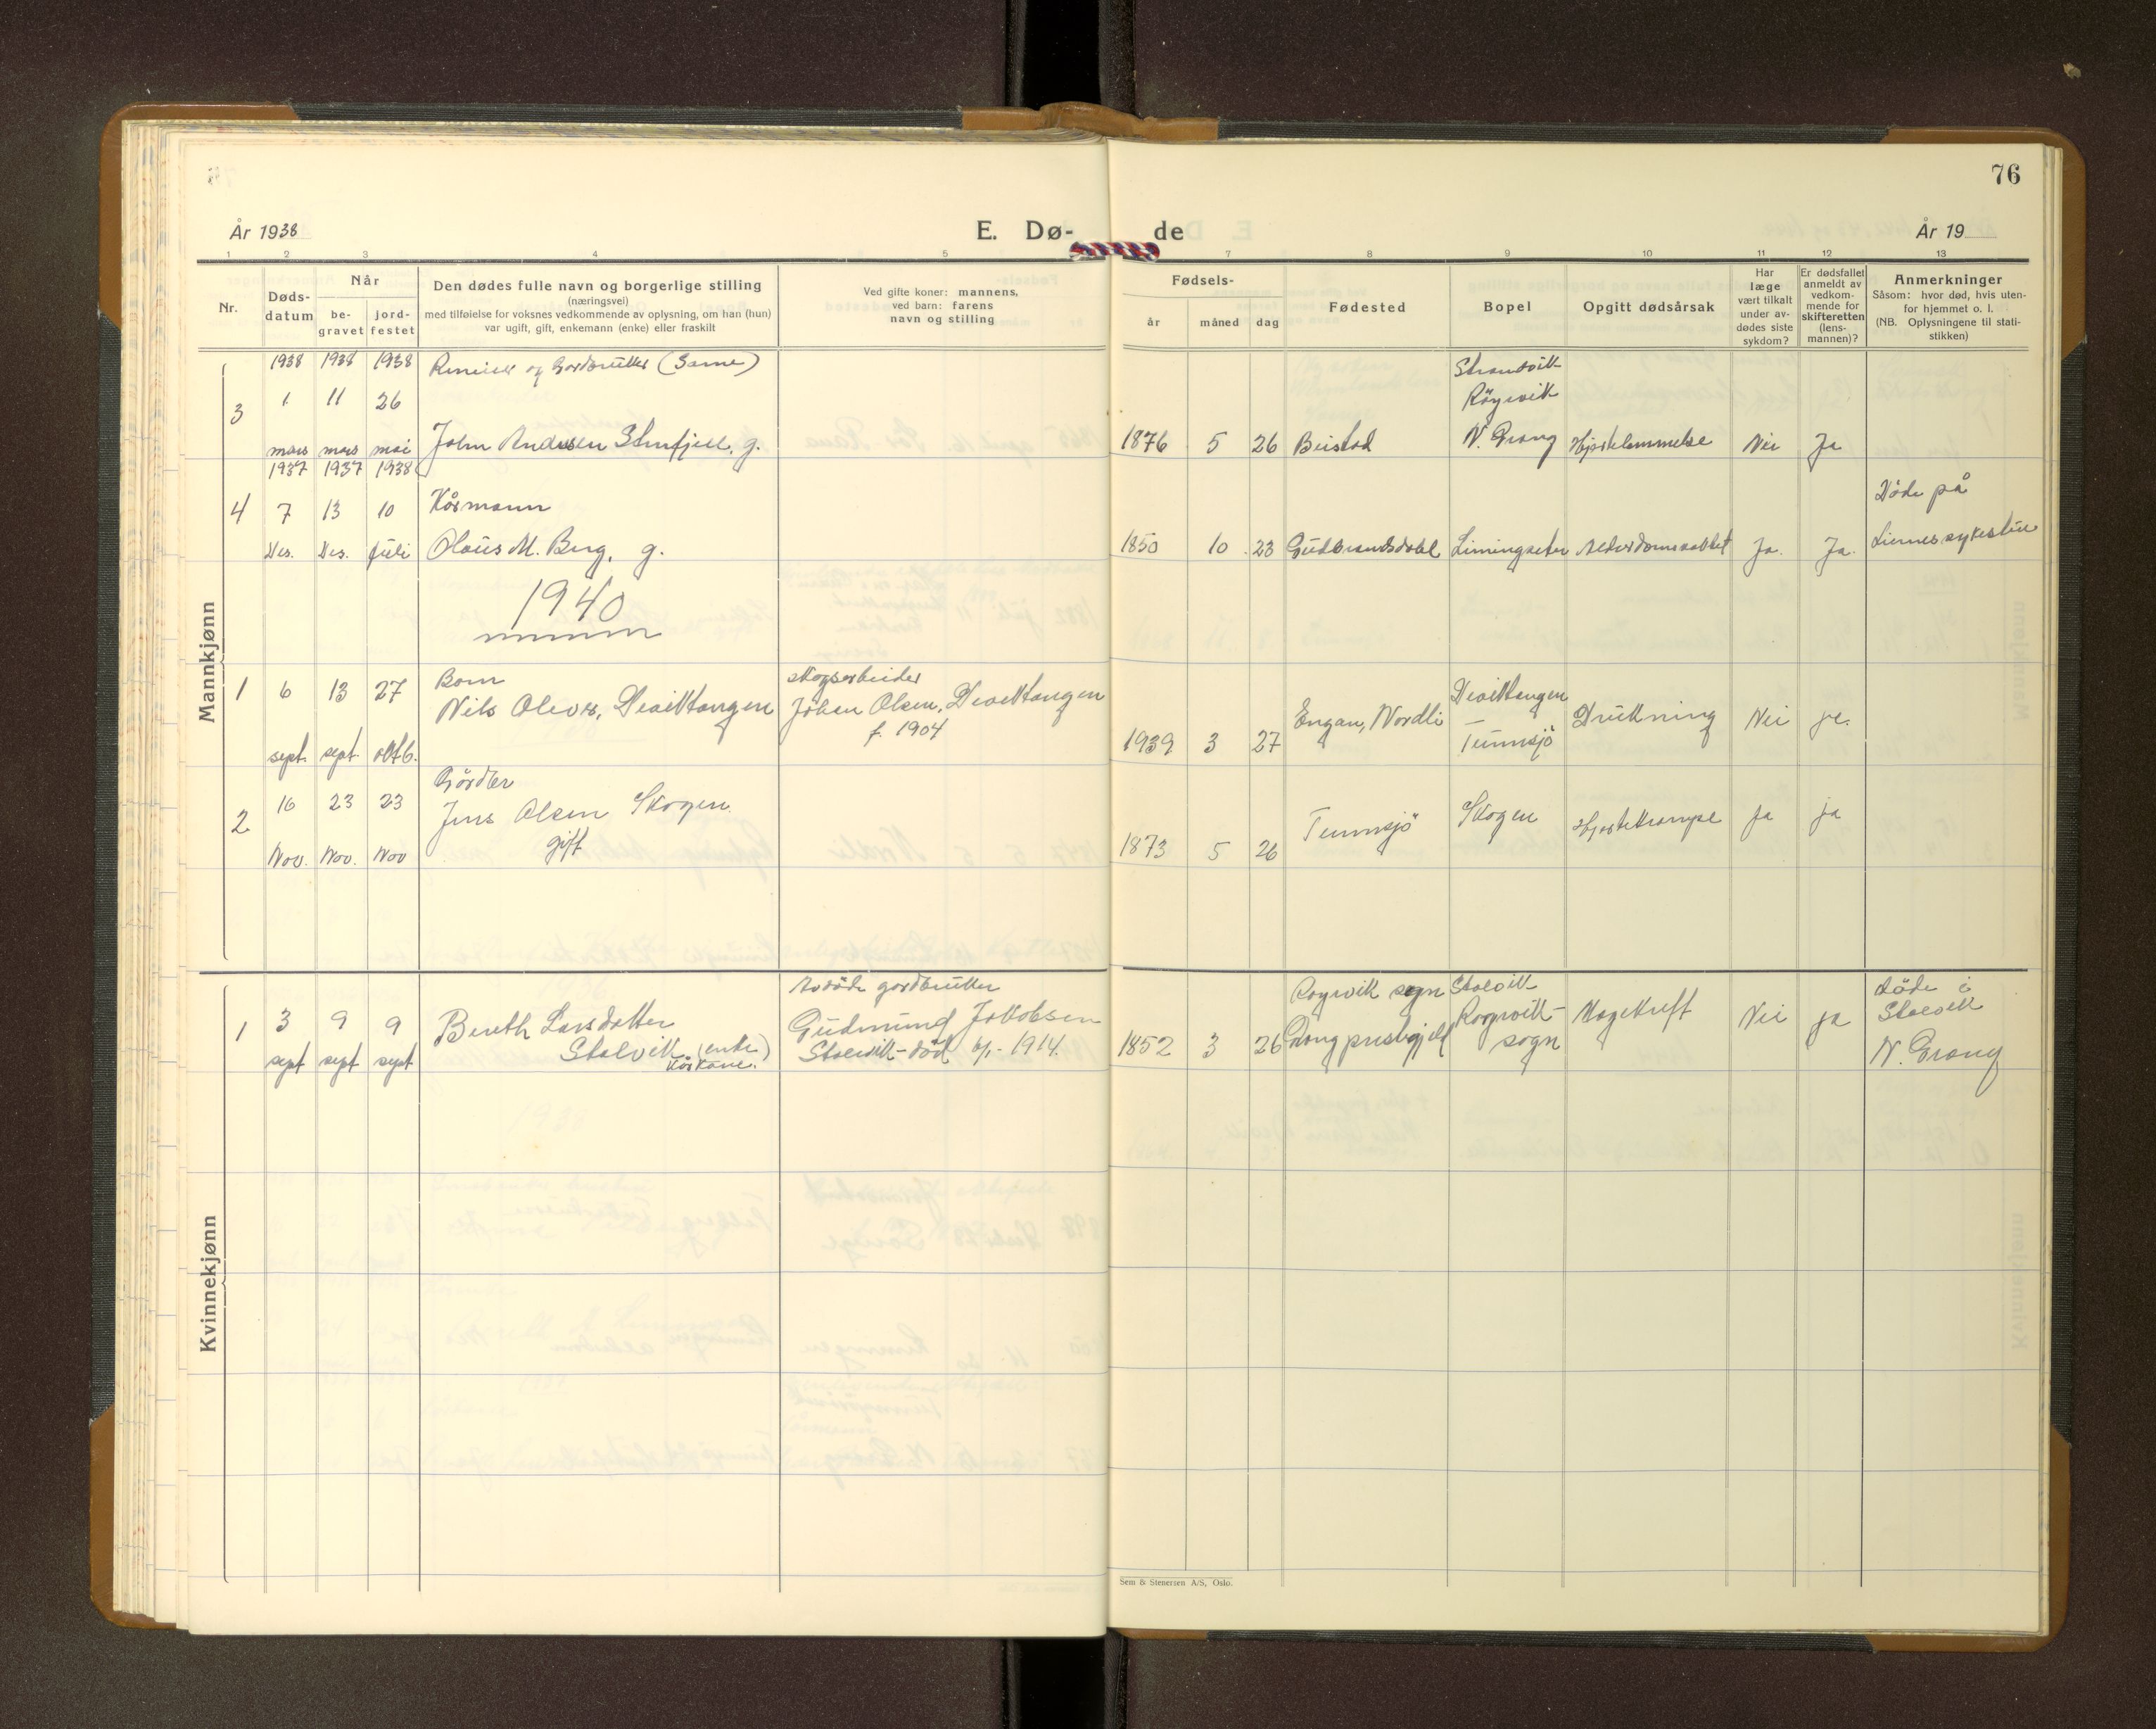 76
År 1938
E. Dø-
de
År 19
1 2 3 4 5 7 8 9 10 11 12 13
Nr.
Døds-
datum
Når
be-
gravet
jord-
festet
Den dødes fulle navn og borgerlige stilling
(næringsvei)
med tilføielse for voksnes vedkommende av oplysning, om han (hun)
var ugift, gift, enkemann (enke) eller fraskilt
Ved gifte koner: mannens,
ved barn: farens
navn og stilling
Fødsels-
år måned dag
Fødested
Bopel
Opgitt dødsårsak
Har
læge
vært tilkalt
under av-
dødes siste
sykdom?
Er dødsfallet
anmeldt av
vedkom-
mende for
skifteretten
(lens-
mannen)?
Anmerkninger
Såsom: hvor død, hvis uten-
for hjemmet o. l.
(NB. Oplysningene til stati-
stikken)
Mannkjønn
1938 1938 1938 og Gardbruker (Same)
Røyrvik
3 1 11 26
mars mars mai John Andersen g. 1876 5 26 Beistad N. Grong Hjertelammelse Nei Ja
1937 1937 1938
4 7 13 10 Kårmann Døde på
Des. Des. juli Olaus M. Berg, g. 1850 10 23 Gudbrandsdal Limingseter Ja. Ja. Liernes
1940
1 6 13 27 Barn
Nils Olever, Devittangen
skogsarbeider
Johan Olsen, Devittangen
f. 1904
sept. sept. oktb. 1939 3 27 Engan, Nordli
Devittangen
Tunnsjø
Drukning Nei ja.
2 16 23 23 Gårdbr
Jens Olsen Skogen
gift
Nov. Nov. Nov 1873 5 26 Tunnsjø Skogen Hjertekrampe Ja ja
Kvinnekjønn
1 3 9 9
sept sept sept
Bereth Larsdatter
(enke)
Kårkone.
Avdøde gardbruker
Gudmund Jakobsen
død 1914.
1852 3 26
Røyrvik sogn
Grong prestegjeld
Røyrvik-
sogn
Magekreft Nei ja
døde i
N. Grong
Sem & Stenersen A/S, Oslo.